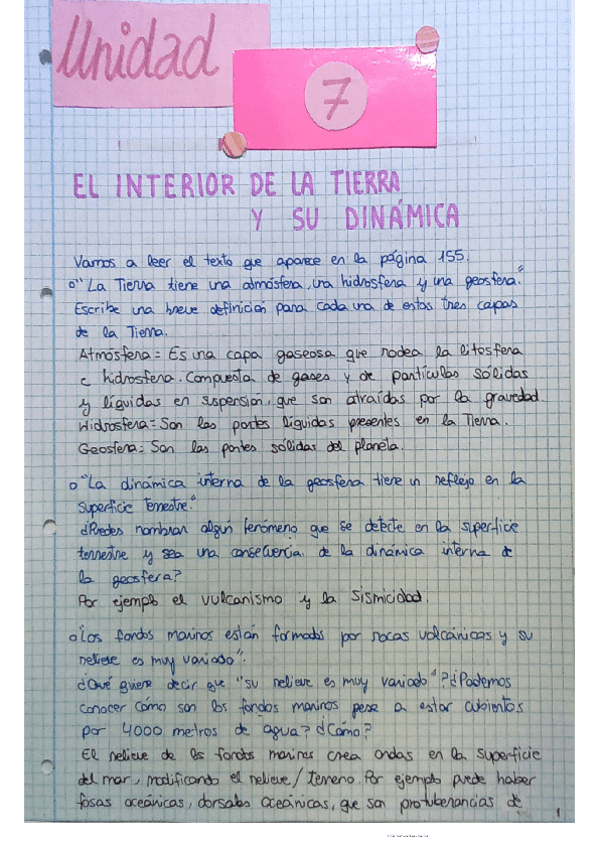 Unidad
7
EL INTERIOR DE LA TIERRA
Y SU DINÁMICA
Vamos a leer el texto que aparece en la página 155.
o "La Tierra tiene una atmósfera, una hidrosfera y una geosfera."
Escribe una breve definición para cada una de estas tres capas
de la Tierra.
Atmósfera = Es una capa gaseosa que rodea la litosfera
e hidrosfera. Compuesta de gases y de partículas sólidas
y líquidas en suspensión, que son atraídas por la gravedad.
Hidrosfera = Son las partes líquidas presentes en la Tierra.
Geosfera = Son las partes sólidas del planeta.
o "La dinámica interna de la geosfera tiene un reflejo en la
superficie terrestre."
¿Puedes nombrar algún fenómeno que se detecte en la superficie
terrestre y sea una consecuencia de la dinámica interna de
la geosfera?
Por ejemplo el vulcanismo y la sismicidad.
o "Los fondos marinos están formados por rocas volcánicas y su
relieve es muy variado".
¿Qué quiere decir que "su relieve es muy variado"? ¿Podemos
conocer cómo son los fondos marinos pese a estar cubiertos
por 4000 metros de agua? ¿Cómo?
El relieve de los fondos marinos crea ondas en la superficie
del mar, modificando el relieve/terreno. Por ejemplo puede haber
fosas oceánicas, dorsales oceánicas, que son protuberancias de
1